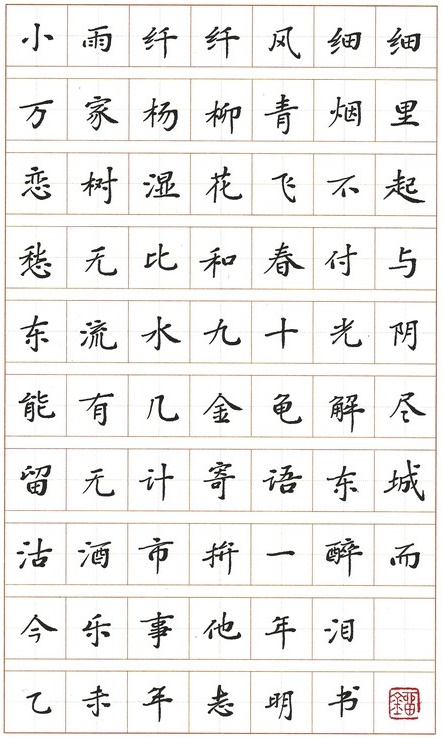 小雨纤纤风细细
万家杨柳青烟里
恋树湿花飞不起
愁无比和春付与
东流水九十光阴
能有几金龟解尽
留无计寄语东城
沽酒市拚一醉而
今乐事他年泪
乙未年志明书